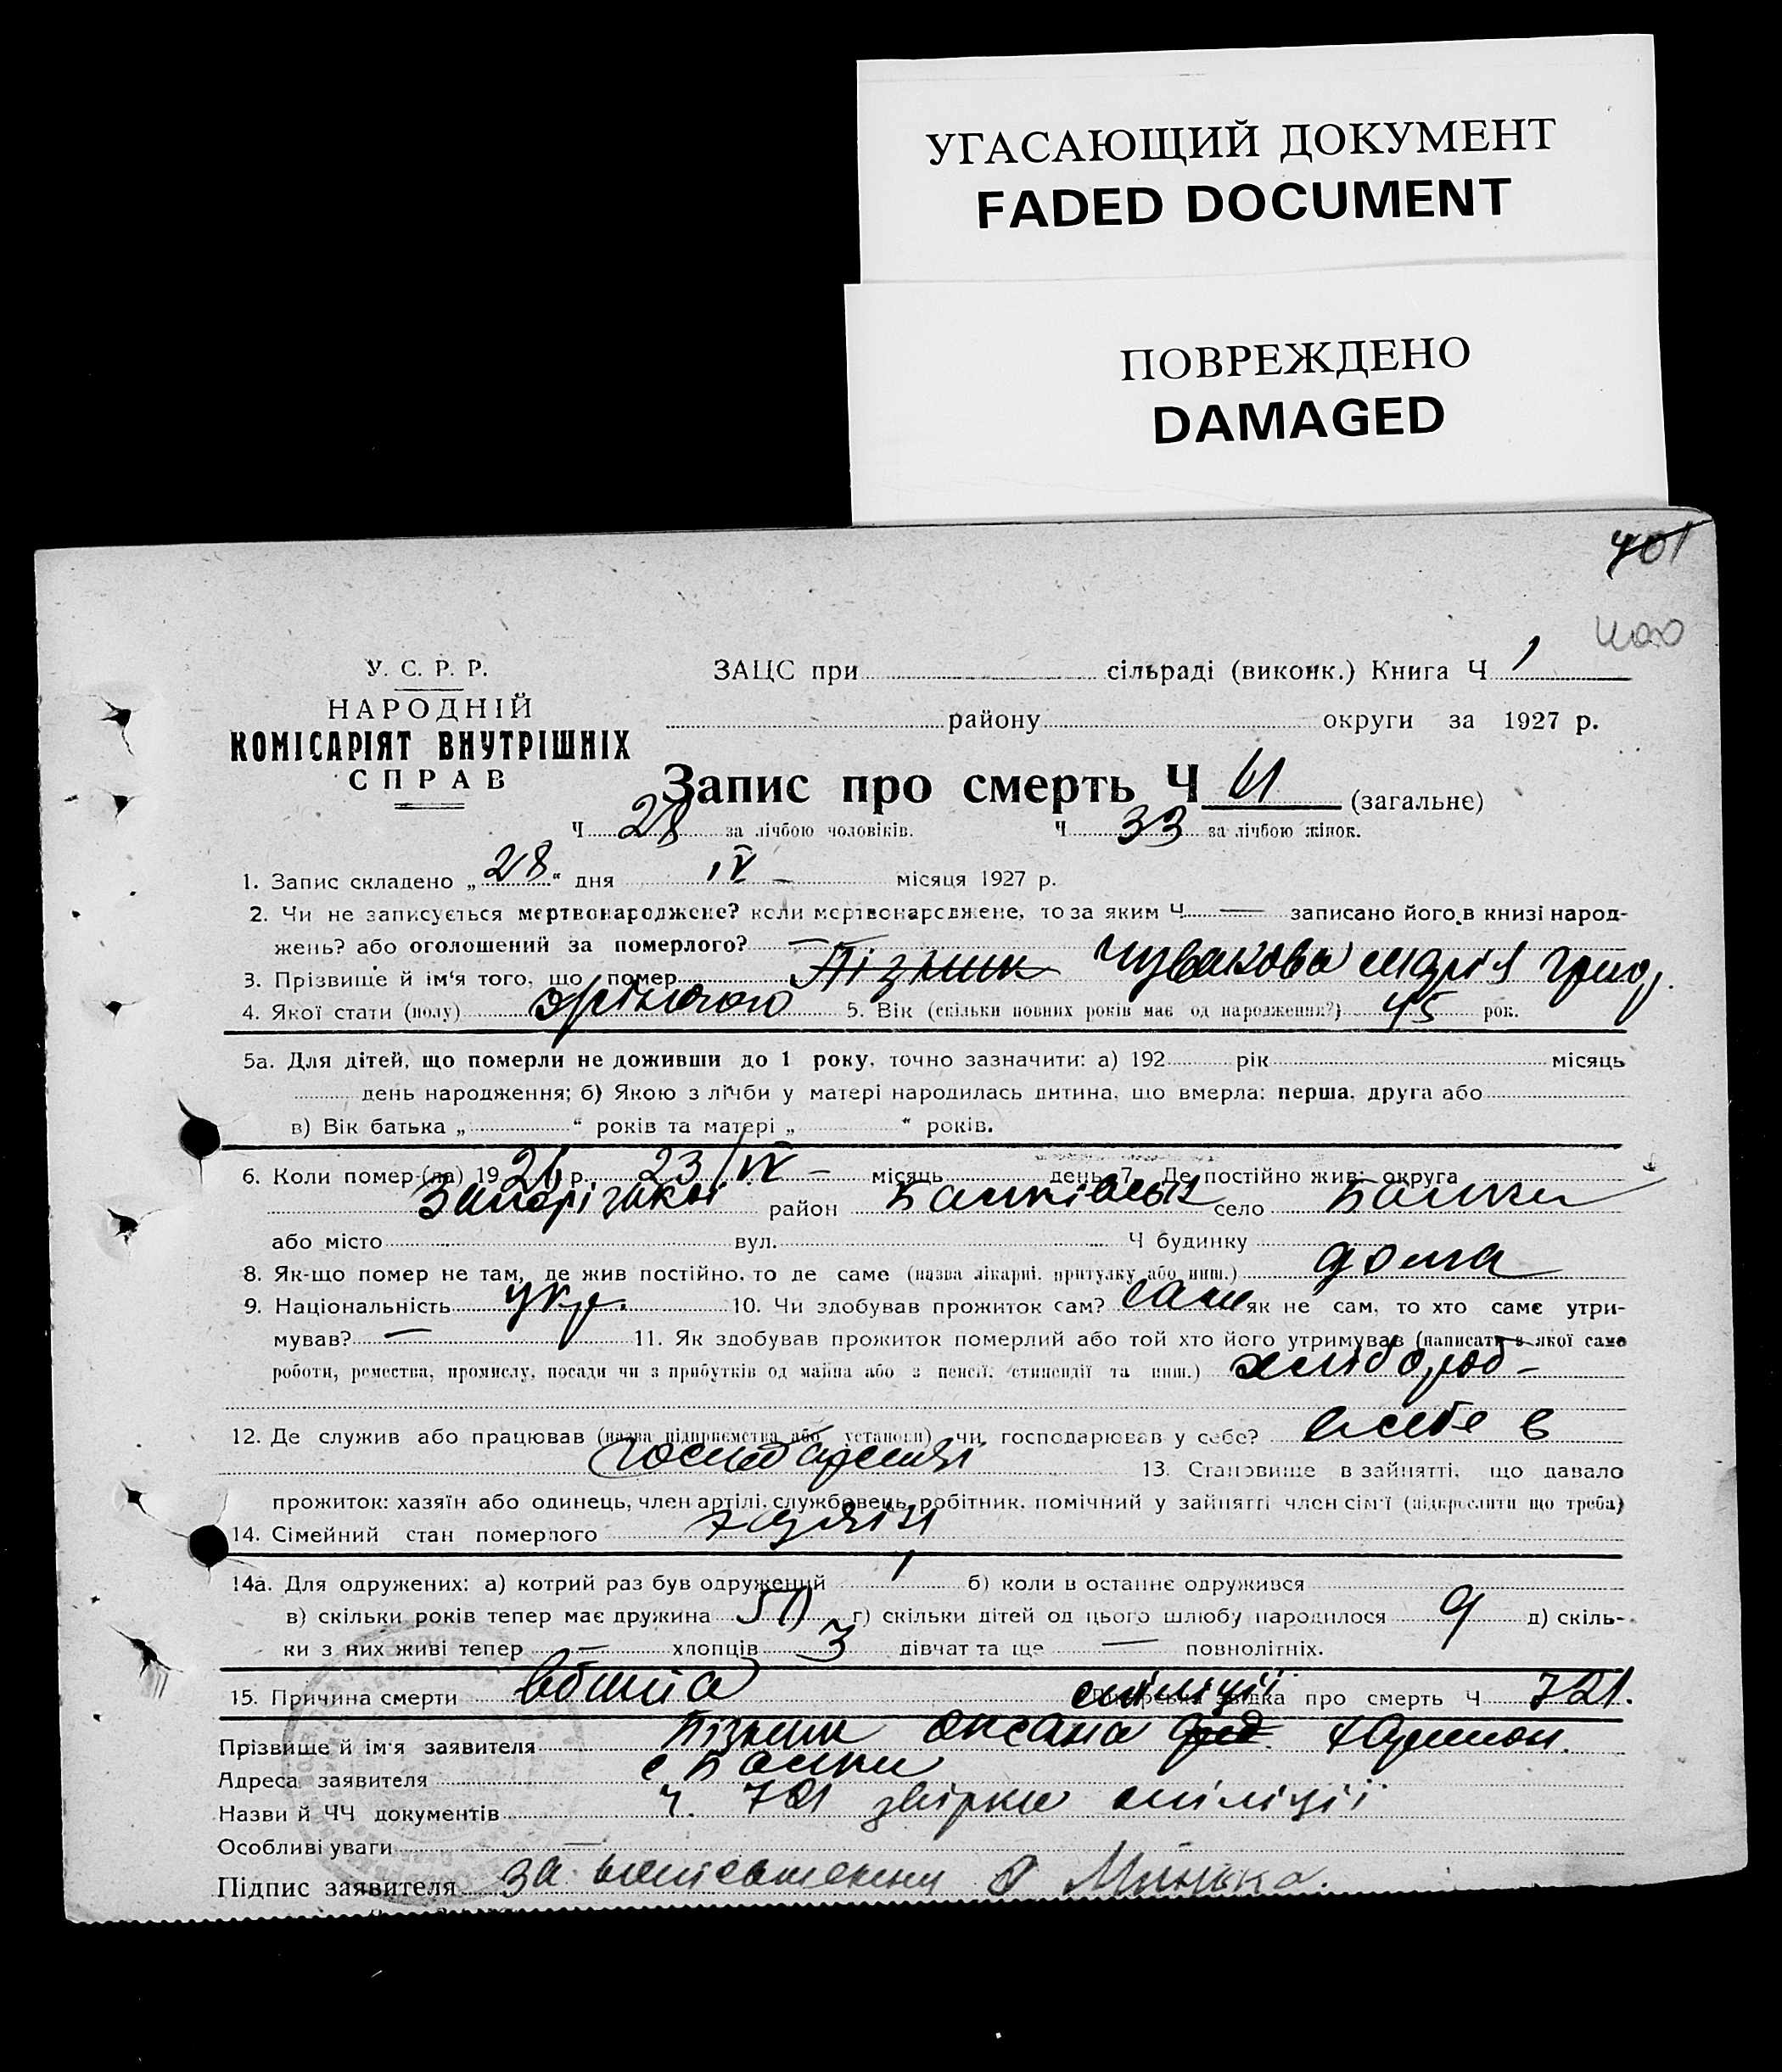 УГАСАЮЩИЙ ДОКУМЕНТ
FADED DOCUMENT
ПОВРЕЖДЕНО
DAMAGED
401
400
У. С. Р. Р.
НАРОДНІЙ
КОМІСАРІЯТ ВНУТРІШНІХ
СПРАВ
ЗАЦС при сільраді (виконк.) Книга Ч 1
району округи за 1927 р.
Запис про смерть Ч 61 (загальне)
Ч 28 за лічбою чоловіків. Ч 33 за лічбою жінок.
1. Запис складено „28“ дня IV місяця 1927 р.
2. Чи не записується мертвонароджене? коли мертвонароджене, то за яким Ч — записано його в книзі народ-
жень? або оголошений за померлого? —
3. Прізвище й ім‘я того, що помер Пізник Чувакова Марія Григ.
4. Якої стати (полу) жіночого 5. Вік (скільки повних років має од народження?) 45 рок.
5а. Для дітей, що померли не доживши до 1 року, точно зазначити: а) 192 рік місяць
день народження; б) Якою з лічби у матері народилась дитина, що вмерла: перша, друга або
в) Вік батька „ “ років та матері „ “ років.
6. Коли помер-(ла) 1926 р. 23/IV — місяць день 7. Де постійно жив: округа
Запоріжської район Камківськ село Камки
або місто вул. Ч будинку
8. Як-що помер не там, де жив постійно, то де саме (назва лікарні, притулку або инш.) дома
9. Національність укр. 10. Чи здобував прожиток сам? сам як не сам, то хто саме утри-
мував? — 11. Як здобував прожиток померлий або той хто його утримував (написати з якої саме
роботи, ремества, промислу, посади чи з прибутків од майна або з пенсії, стипендії та инш.) хлібороб —
12. Де служив або працював (назва підприємства або установи) чи господарював у себе? в себе в
господарстві 13. Становище в зайнятті, що давало
прожиток: хазяїн або одинець, член артілі, службовець, робітник, помічний у зайнятті член сім'ї (підкреслити що треба)
14. Сімейний стан померлого
14а. Для одружених: а) котрий раз був одружений 1 б) коли в останнє одружився
в) скільки років тепер має дружина 50 г) скільки дітей од цього шлюбу народилося 9 д) скіль-
ки з них живі тепер — хлопців 3 дівчат та ще — повнолітніх.
15. Причина смерти вбита міліції Лікарська звідка про смерть Ч 721.
Прізвище й ім'я заявителя Пізник Оксана
Адреса заявителя с Камки
Назви й ЧЧ документів ч. 721 звірки міліції
Особливі уваги —
Підпис заявителя За неписьменни